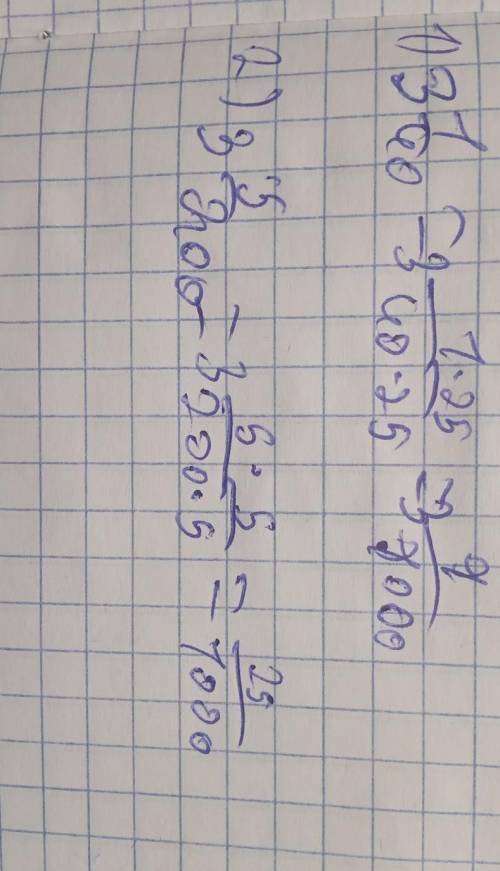 1) 3 1/40 = 3 1·25/40·25 = 3 1/1000
2) 3 5/200 = 3 5·5/200·5 = 25/1000